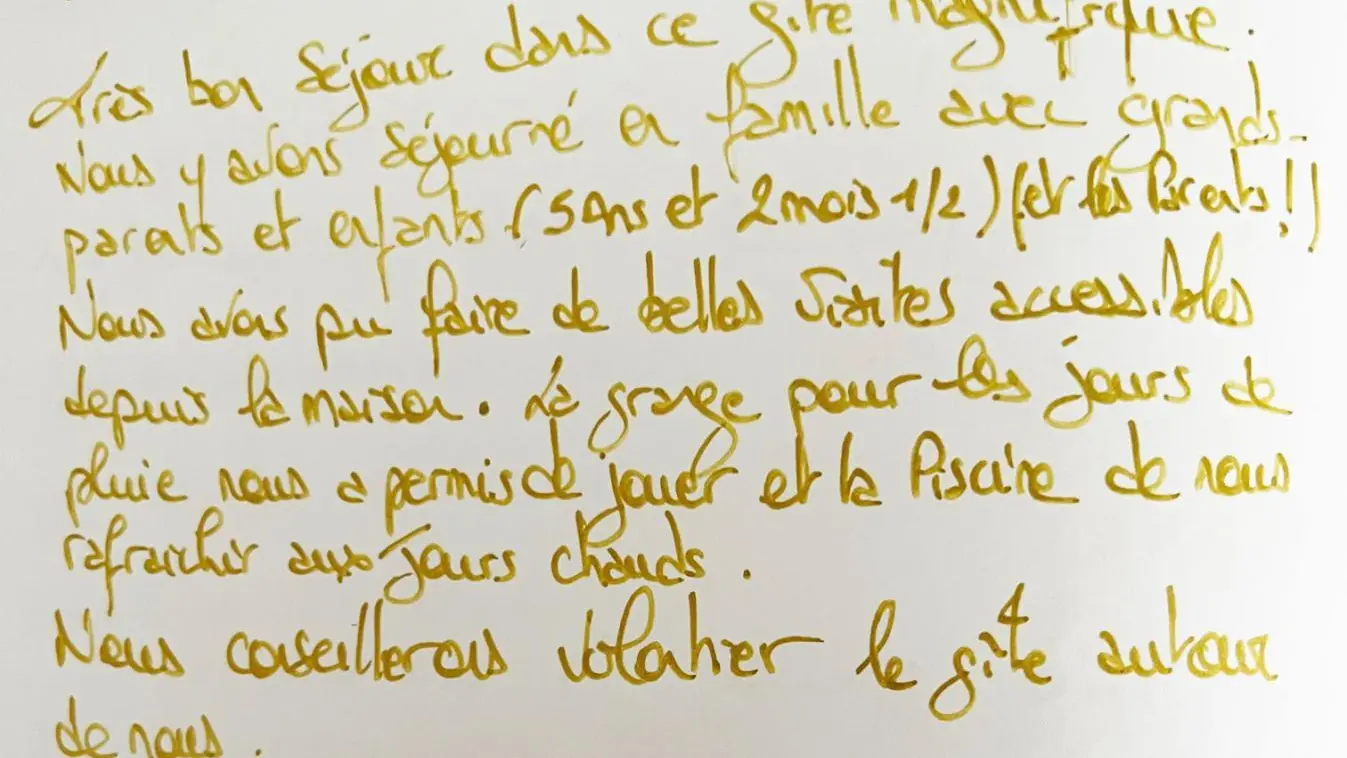 Très bon séjour dans ce gîte magnifique.
Nous y avons séjourné en famille avec grands-
parents et enfants (5 Ans et 2 mois 1/2) (et les Parents !)
Nous avons pu faire de belles visites accessibles
depuis la maison. La grange pour les jours de
pluie nous a permis de jouer et la Piscine de nous
rafraichir aux jours chauds.
Nous conseillerons volontier le gîte autour
de nous.